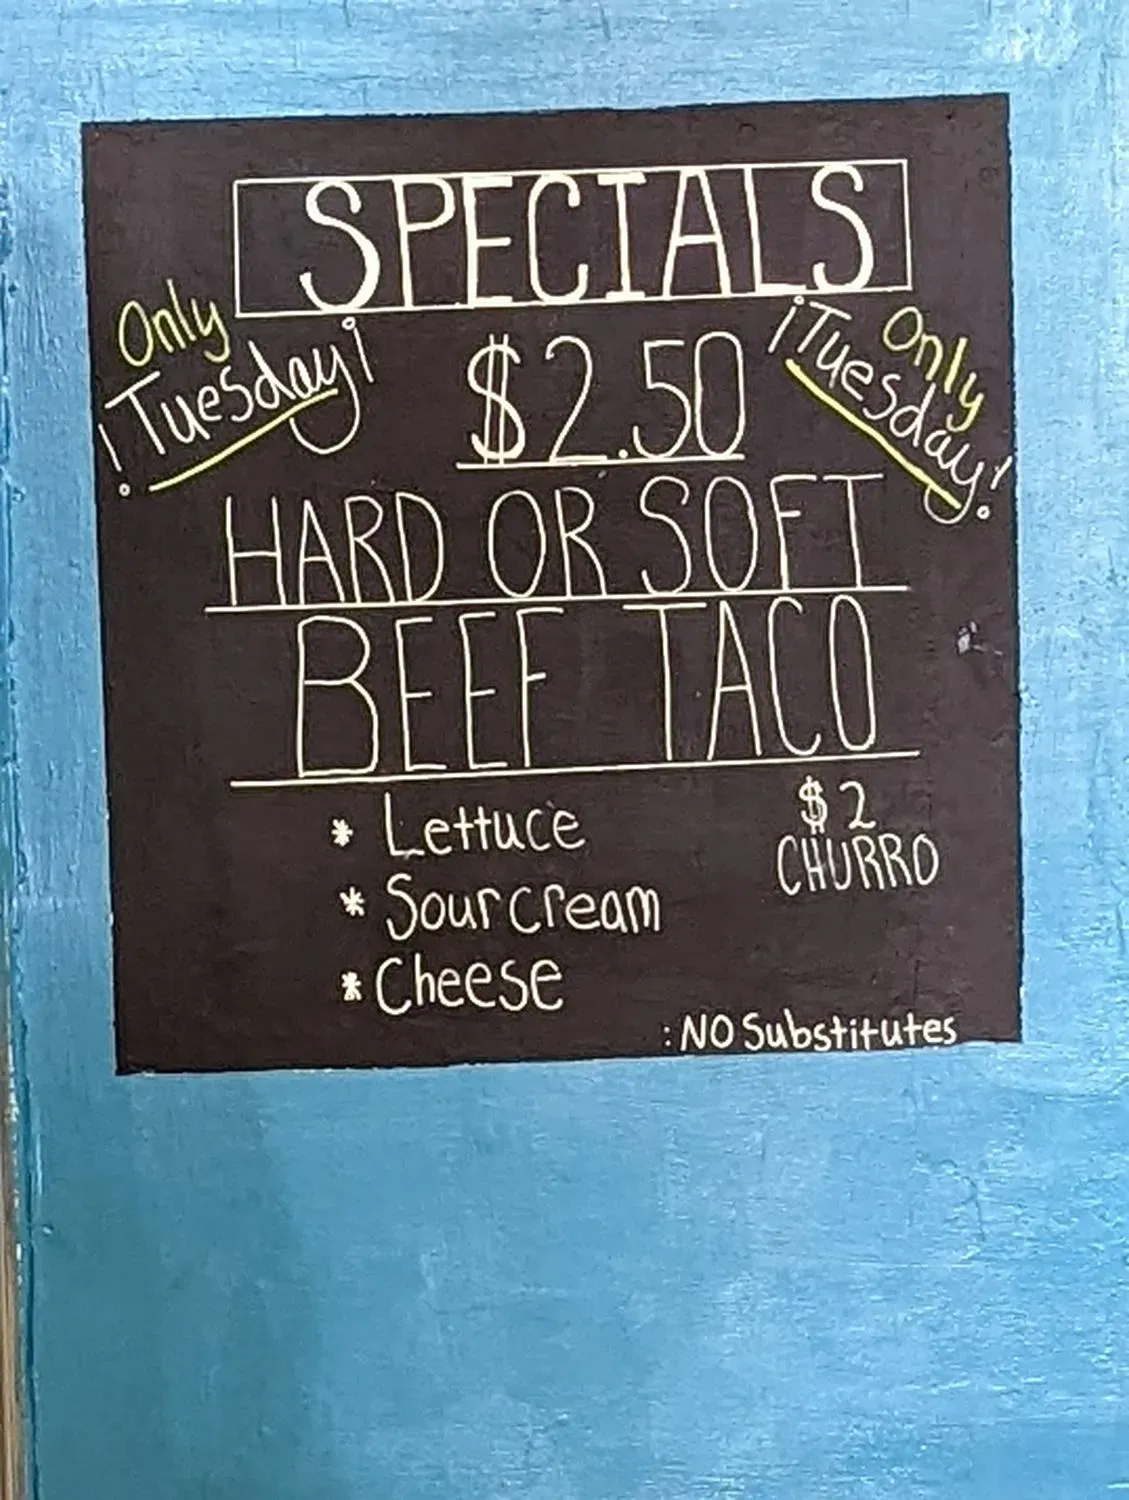 SPECIALS
Only
!Tuesday¡
$2.50
Only
¡Tuesday!
HARD OR SOFT
BEEF TACO
* Lettuce
* Sour cream
* Cheese
$2
CHURRO
: NO Substitutes